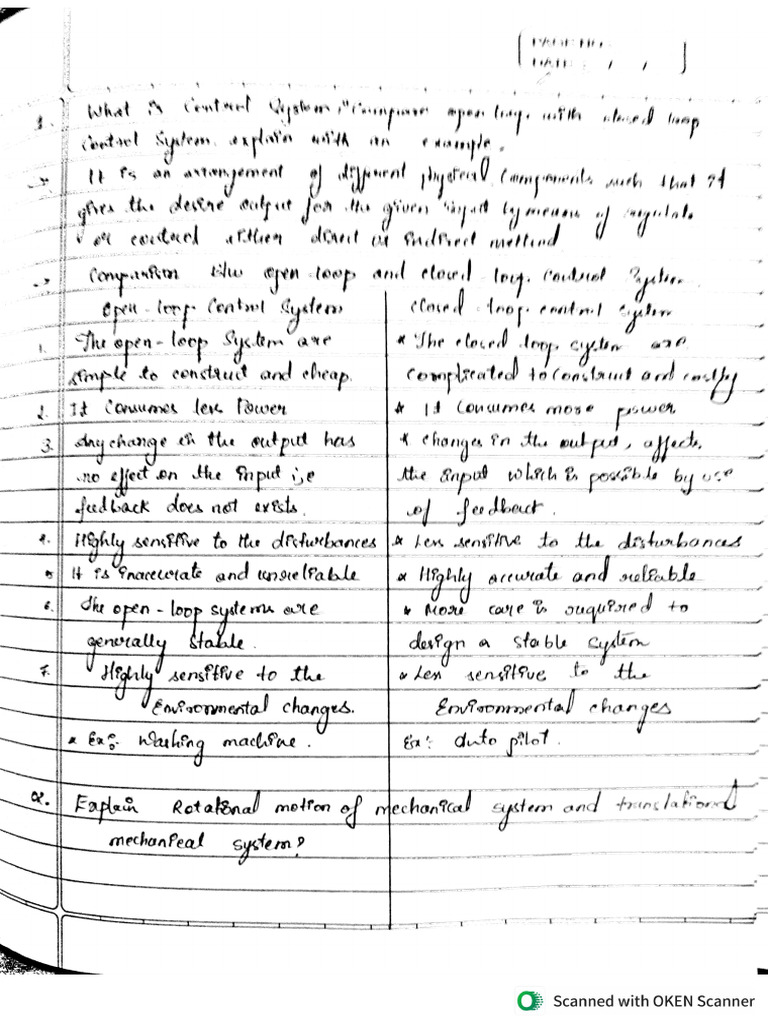 PAGE NO:
DATE: / /
1. What is Control System, "Compare open loop with closed loop
Control System explain with an example.
→ It is an arrangement of different physical Components such that it
gives the desire output for the given input by means of regulate
or control either direct or indirect method
→ Comparism b/w open-loop and closed-loop control System
Open-loop Control System closed-loop control System
1. The open-loop System are * The closed loop system are
simple to construct and cheap. complicated to construct and costly
2. It Consumes less Power * It consumes more power
3. Any change in the output has * changes in the output, affects
no effect on the input i,e the input which is possible by use
feedback does not exists. of feedback.
4. Highly sensitive to the disturbances * Less sensitive to the disturbances
5. It is inaccurate and unreliable * Highly accurate and reliable
6. The open-loop systems are * More care is required to
generally stable. design a stable system
7. Highly sensitive to the * Less sensitive to the
Environmental changes. Environmental changes
* Ex:- Washing machine. Ex:- Auto pilot.
Q2. Explain Rotational motion of mechanical system and translational
mechanical system?
Scanned with OKEN Scanner